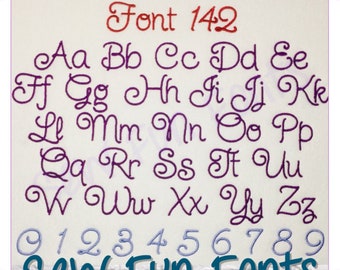 Font 142
Aa Bb Cc Dd Ee
Ff Gg Hh Ii Jj Kk
Ll Mm Nn Oo Pp
Qq Rr Ss Tt Uu
Vv Ww Xx Yy Zz
0 1 2 3 4 5 6 7 8 9
Sew Fun Fonts